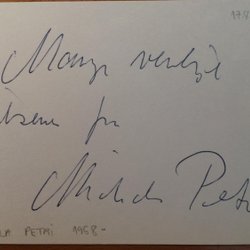 17.8
Mange venlige
ilsener fra
Michala Pet
LA PETRI 1958-